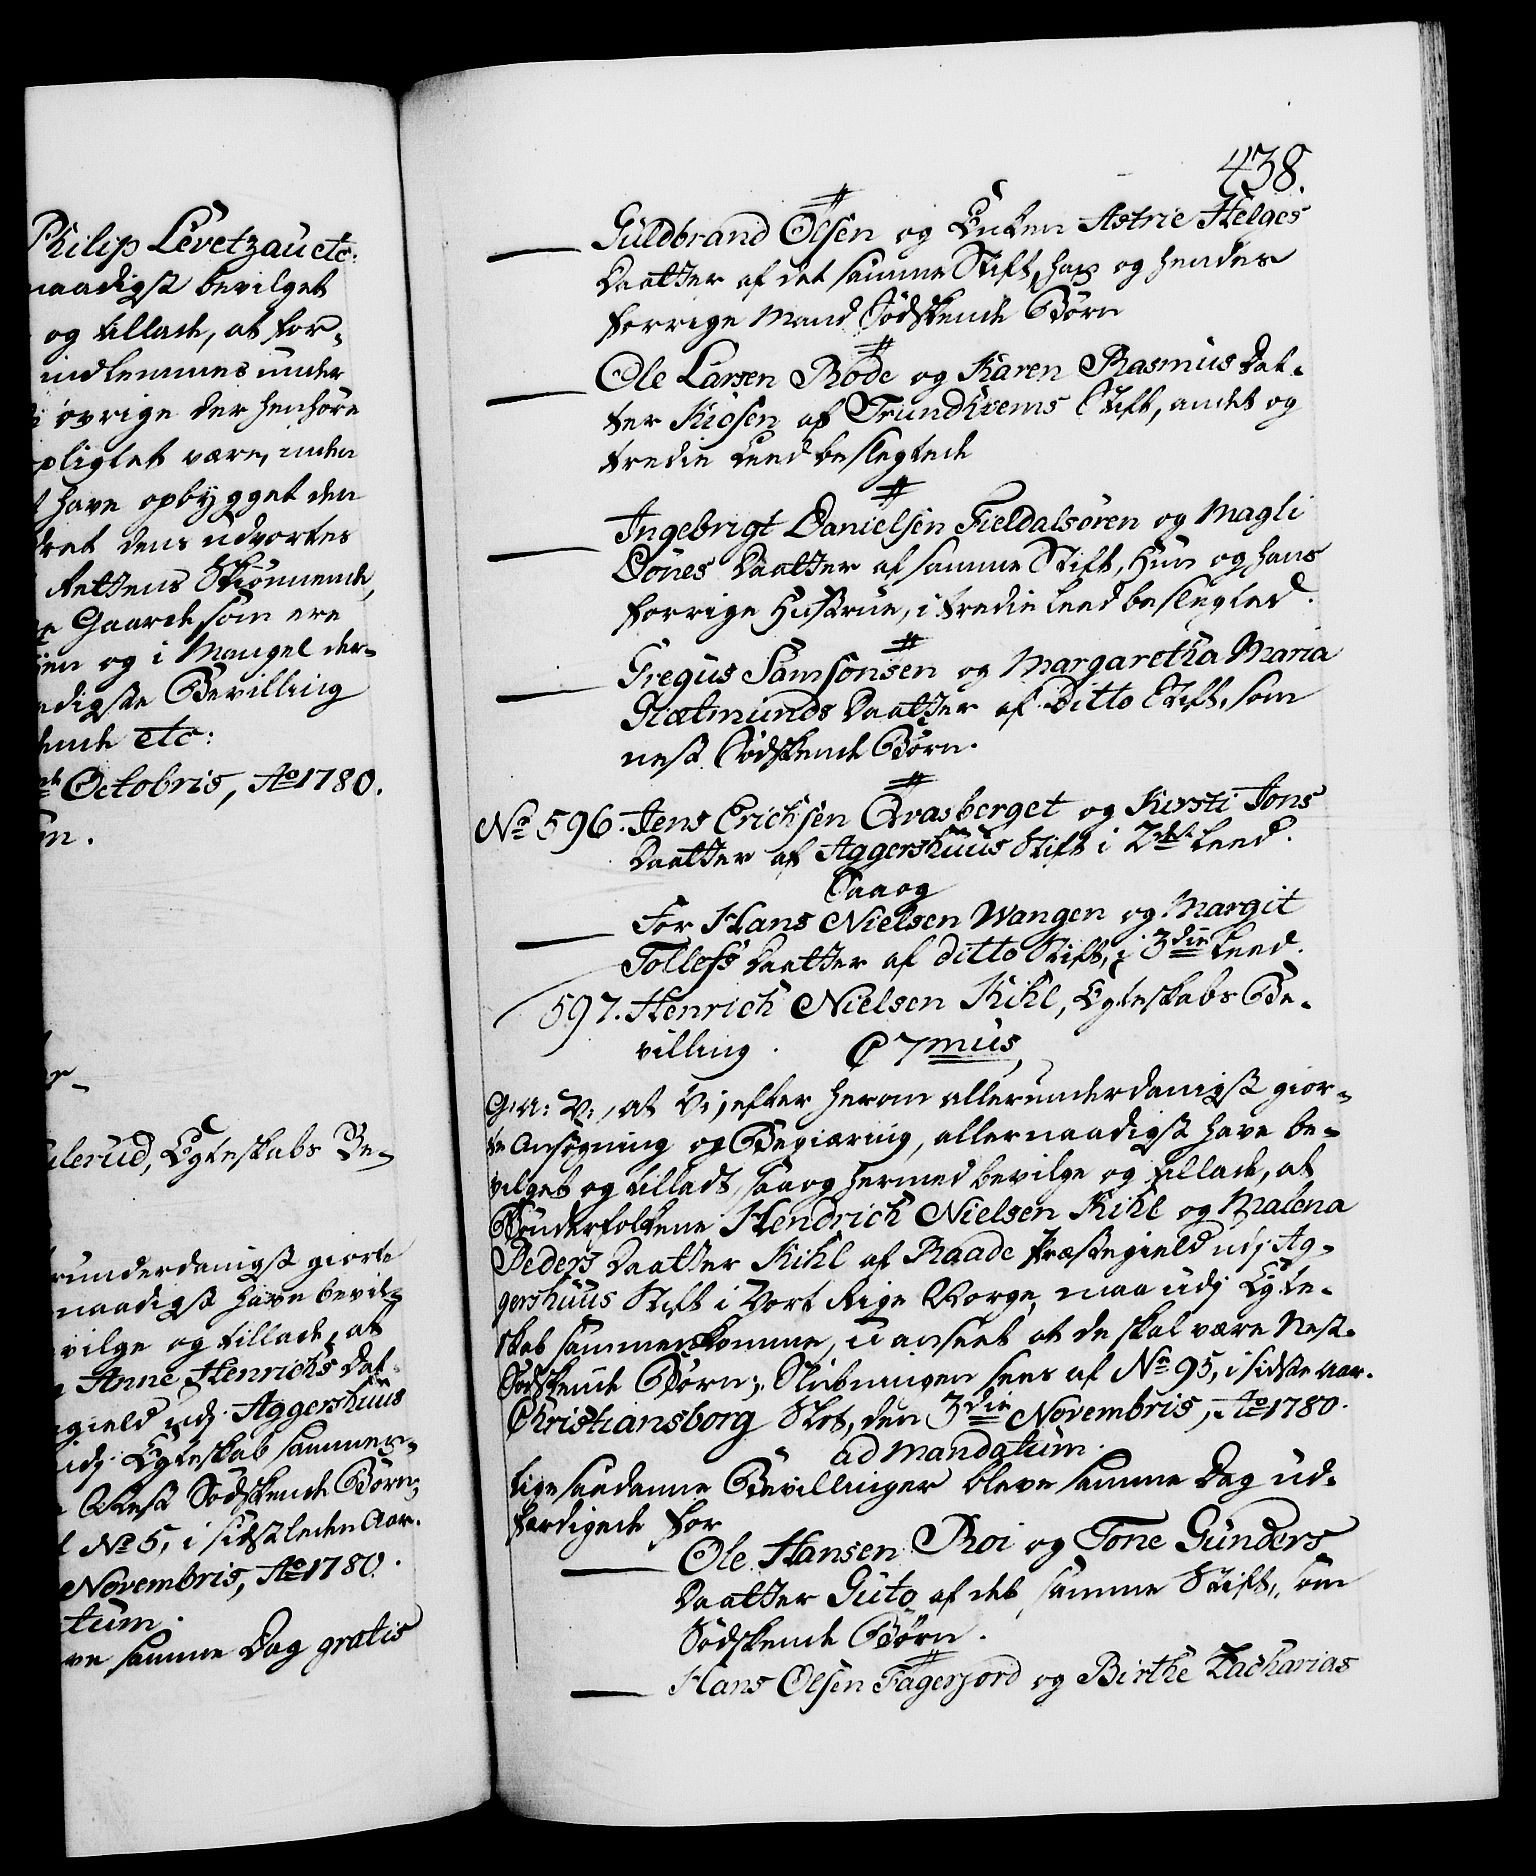 Philip Levetzau etc:
naadigst bevilget
og tillade, at for-
indlemmes under
øvrige der henhøre
pligtet være, inden
have opbygget den
dens udvortes
Rettens Skiønnende,
Gaarde som ere
og i Mangel der-
adigste Bevilling
etc:
Octobris, Ao 1780.
ulerud, Egteskabs Be-
runderdanigst giorte
naadigst have bevil-
vilge og tillade, at
Anne Henrichs Dat-
gield udj Aggershuus
udj Egteskab sammen-
Næst Sødskende Børn;
No 5, i sidstleden Aar.
Novembris, Ao 1780.
tum.
ve samme Dag gratis
438.
Guldbrand Olsen og Enken Astrie Helges
Daatter af det samme Stift, han og hendes
forrige Mand Sødskende Børn
Ole Larsen Rode og Karen Rasmus Dat-
ter Kiosen af Trundhiems Stift, andet og
tredie Leed beslegtede
Ingebrigt Danielsen Fieldalsøren og Magli
Dønes Daatter af samme Stift, hun og hans
forrige Hustrue, i tredie Leed beslegted.
Gregus Samsonsen og Margaretha Maria
Giætmunds Daatter af Ditto Stift, som
nest Sødskende Børn.
No 596. Jens Erichsen Qvasberget og Kirsti Jons
Daatter af Aggershuus Stift i 2det Leed.
Saaog
For Hans Nielsen Wangen og Margit
Tollefs Daatter af ditto Stift, i 3die Leed.
597. Henrich Nielsen Kihl, Egteskabs Be-
villing. C 7mus,
G: A: V:, at Vi, efter herom allerunderdanigst gior-
te Ansøgning og Begiæring, allernaadigst have be-
vilget og tilladt, saa og hermed bevilge og tillade, at
Bønderfolkene Hendrich Nielsen Kihl og Malena
Peders Daatter Kihl af Raade Præstegield udj Ag-
gershuus Stift i Vort Rige Norge, maa udj Egte-
skab sammenkomme, uanseet at de skal være Nest-
Sødskende Børn; Slutningen sees af No 95, i sidste Aar.
Christiansborg Slot, den 3die Novembris, Ao 1780.
ad mandatum.
Lige saadanne Bevillinger bleve samme Dag ud-
færdigede for
Ole Hansen Roi og Tone Gunders
Daatter Guto af det samme Stift, som
Sødskende Børn.
Hans Olsen Fagerjord og Birthe Zacharias